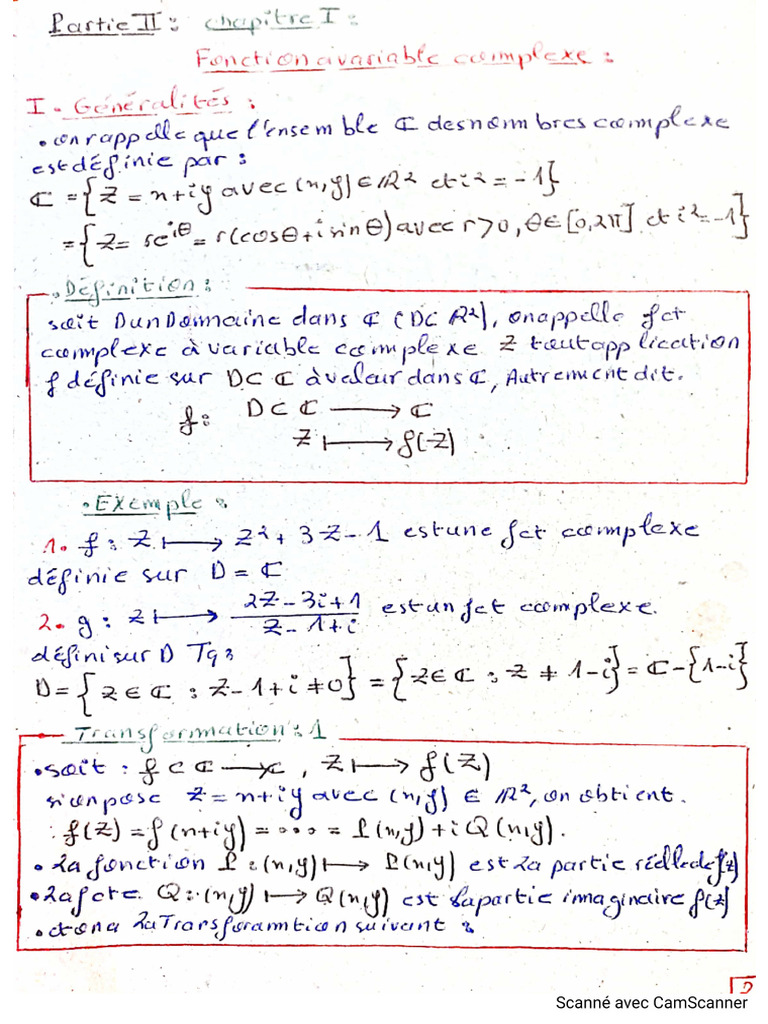 Partie II : chapitre I :
Fonction a variable complexe :
I - Généralités :
• on rappelle que l'ensemble ℂ des nombres complexe
est définie par :
ℂ = {Z = x+iy avec (x,y) ∈ ℝ² et i² = -1}
= {Z = re^{iθ} = r(cosθ + i sinθ) avec r>0, θ∈[0,2π] et i²=-1}
• Définition :
soit D un Domaine dans ℂ (D⊂ℝ²), on appelle fct
complexe à variable complexe Z tout application
f définie sur D⊂ℂ à valeur dans ℂ, Autrement dit.
f : D⊂ℂ ⟶ ℂ
Z ⟼ f(Z)
• Exemple :
1. f : Z ⟼ Z² + 3Z - 1 est une fct complexe
définie sur D = ℂ
2. g : Z ⟼ (2Z - 3i + 1)/(Z - 1 + i) est un fct complexe.
défini sur D Tq :
D = {Z ∈ ℂ : Z-1+i ≠ 0} = {Z ∈ ℂ : Z ≠ 1-i} = ℂ - {1-i}
Transformation : 1
• soit : f ⊂ ℂ ⟶ ℂ, Z ⟼ f(Z)
si on pose Z = x+iy avec (x,y) ∈ ℝ², on obtient.
: f(Z) = f(x+iy) = .... = P(x,y) + i Q(x,y).
• La fonction P : (x,y) ⟼ P(x,y) est la partie réelle de f(z)
• La fcte. Q : (x,y) ⟼ Q(x,y) est la partie imaginaire f(z)
• et on a la Transforamtion suivant :
Scanné avec CamScanner